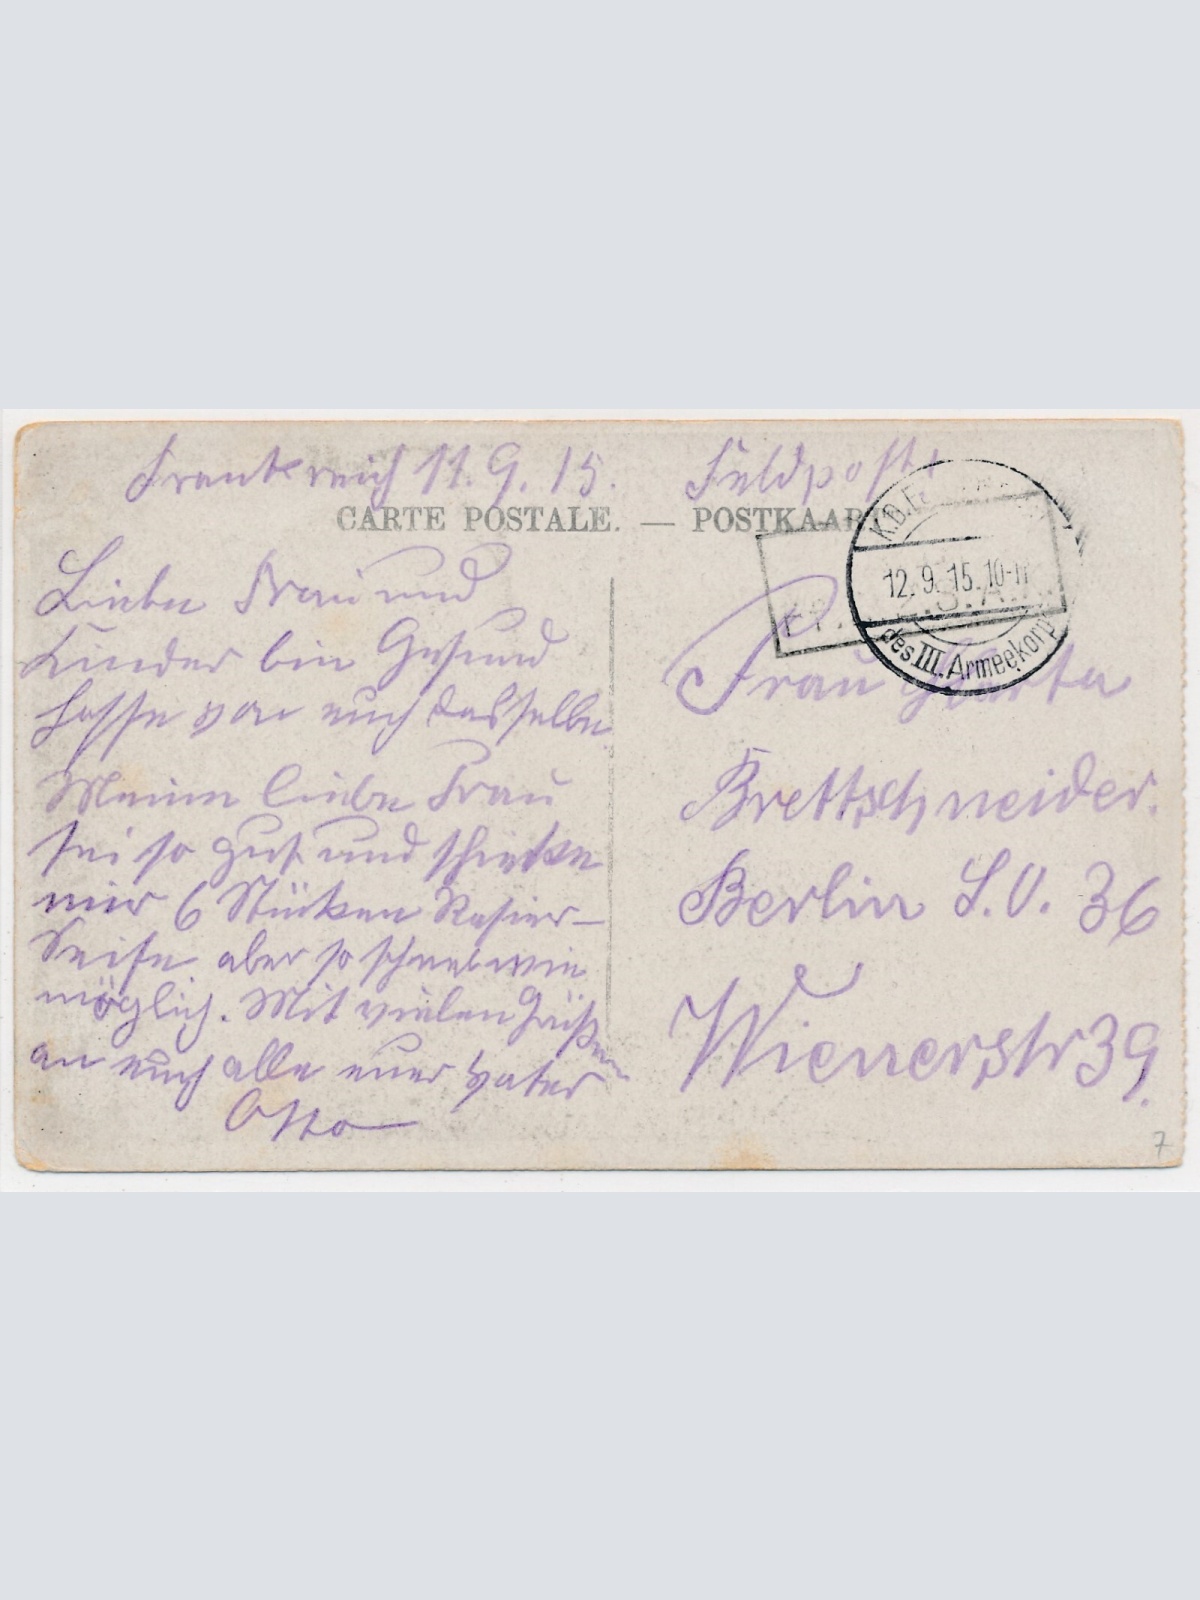 Frankreich 11.9.15.
Feldpost
CARTE POSTALE. — POSTKAAR
K.B.
12.9.15. 10-11
des III. Armeekorp
Liebe Frau und
Kinder bin Gesund
hoffe von euch dasselbe.
Meine liebe Frau
sei so gut und schicke
mir 6 Stücken Rasier-
Seife aber so schnel wie
möglich. Mit vielen Grüßen
an euch alle euer Vater
Otto
Frau
Brettschneider.
Berlin S.O. 36
Wienerstr 39.
7